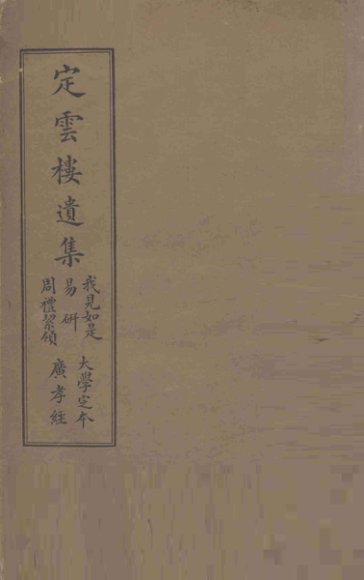 定雲樓遺集
我見如是
易研
周禮絜領
大學定本
廣孝經